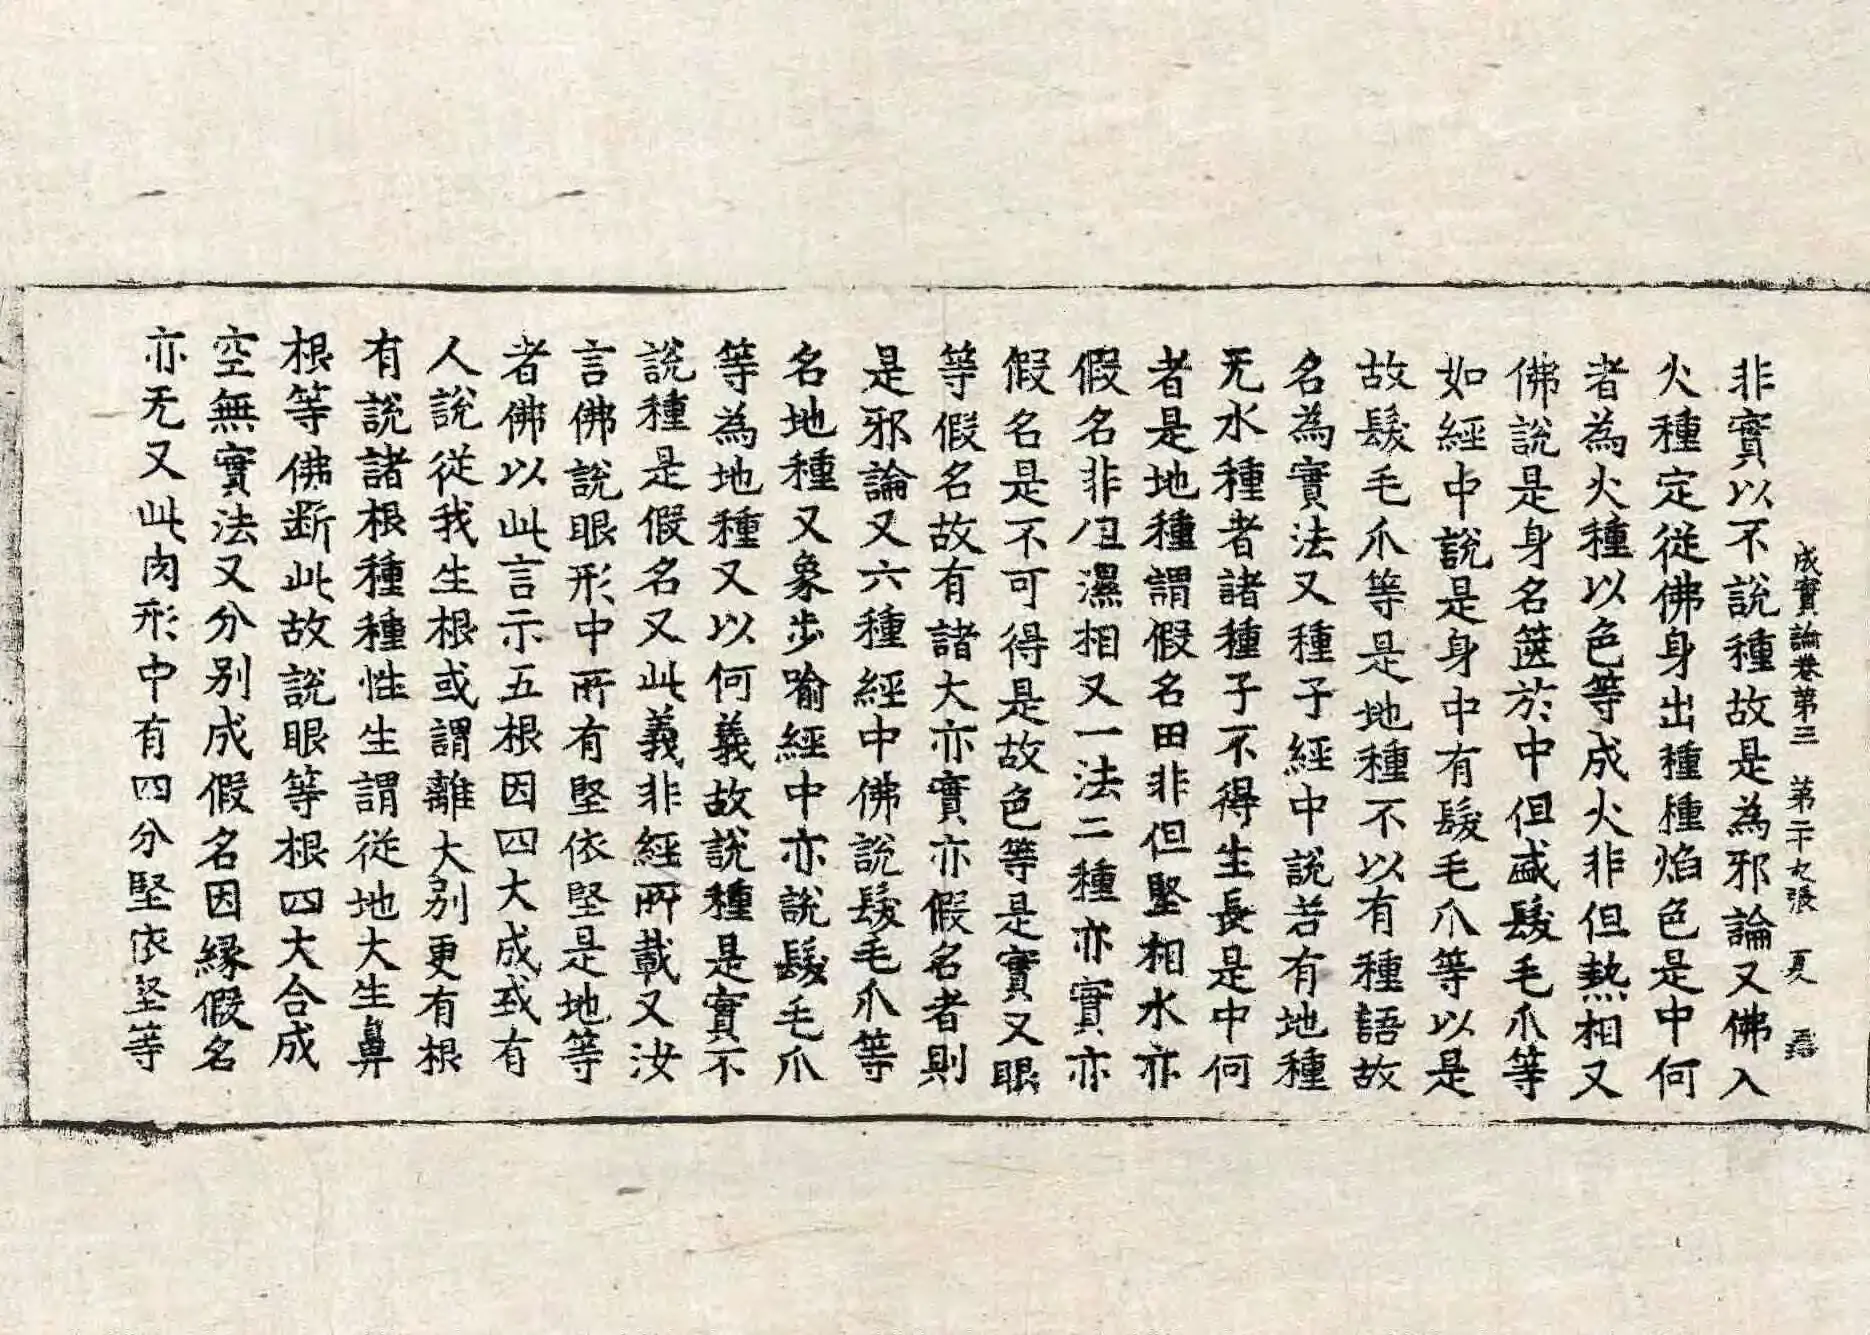 成實論卷第三 第二十九張 夏
非實以不說種故是為邪論又佛入
火種定從佛身出種種焰色是中何
者為火種以色等成火非但熱相又
佛說是身名篋於中但盛髮毛爪等
如經中說是身中有髮毛爪等以是
故髮毛爪等是地種不以有種語故
名為實法又種子經中說若有地種
无水種者諸種子不得生長是中何
者是地種謂假名田非但堅相水亦
假名非但濕相又一法二種亦實亦
假名是不可得是故色等是實又眼
等假名故有諸大亦實亦假名者則
是邪論又六種經中佛說髮毛爪等
名地種又象步喻經中亦說髮毛爪
等為地種又以何義故說種是實不
說種是假名又此義非經所載又汝
言佛說眼形中所有堅依堅是地等
者佛以此言示五根因四大成或有
人說從我生根或謂離大別更有根
有說諸根種種性生謂從地大生鼻
根等佛斷此故說眼等根四大合成
空無實法又分別成假名因緣假名
亦无又此肉形中有四分堅依堅等